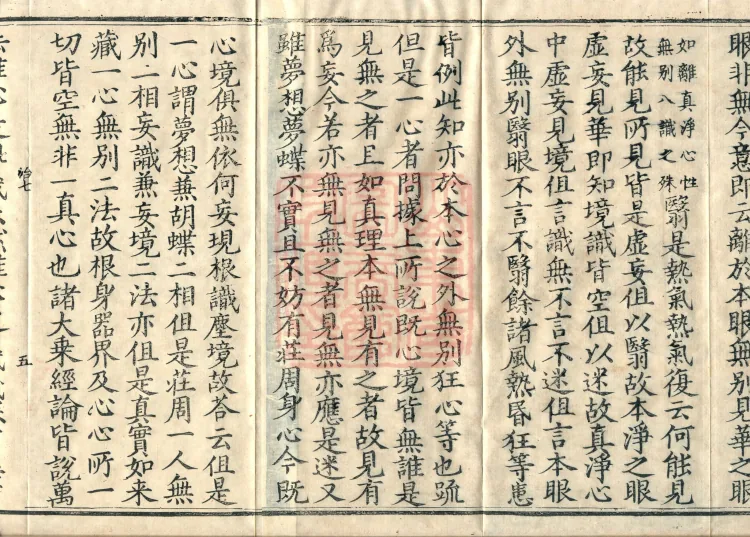 眼非無今意即云離於本眼無別見華之眼
如離真淨心性
無別八識之殊
翳是熱氣熱氣復云何能見
故能見所見皆是虛妄但以翳故本淨之眼
虛妄見華即知境識皆空但以迷故真淨心
中虛妄見境但言識無不言不迷但言本眼
外無別翳眼不言不翳餘諸風熱昏狂等患
皆例此知亦於本心之外無別狂心等也䟽
但是一心者問據上所說既心境皆無誰是
見無之者且如真理本無見有之者故見有
爲妄今若亦無見無之者見無亦應是迷又
雖夢想夢蝶不實且不妨有莊周身心今既
心境俱無依何妄現根識塵境故荅云但是
一心謂夢想蕪胡蝶二相但是莊周一人無
別二相妄識蕪妄境二法亦但是真實如来
藏一心無別二法故根身器界及心心所一
切皆空無非一真心也諸大乗經論皆說萬
治七
五